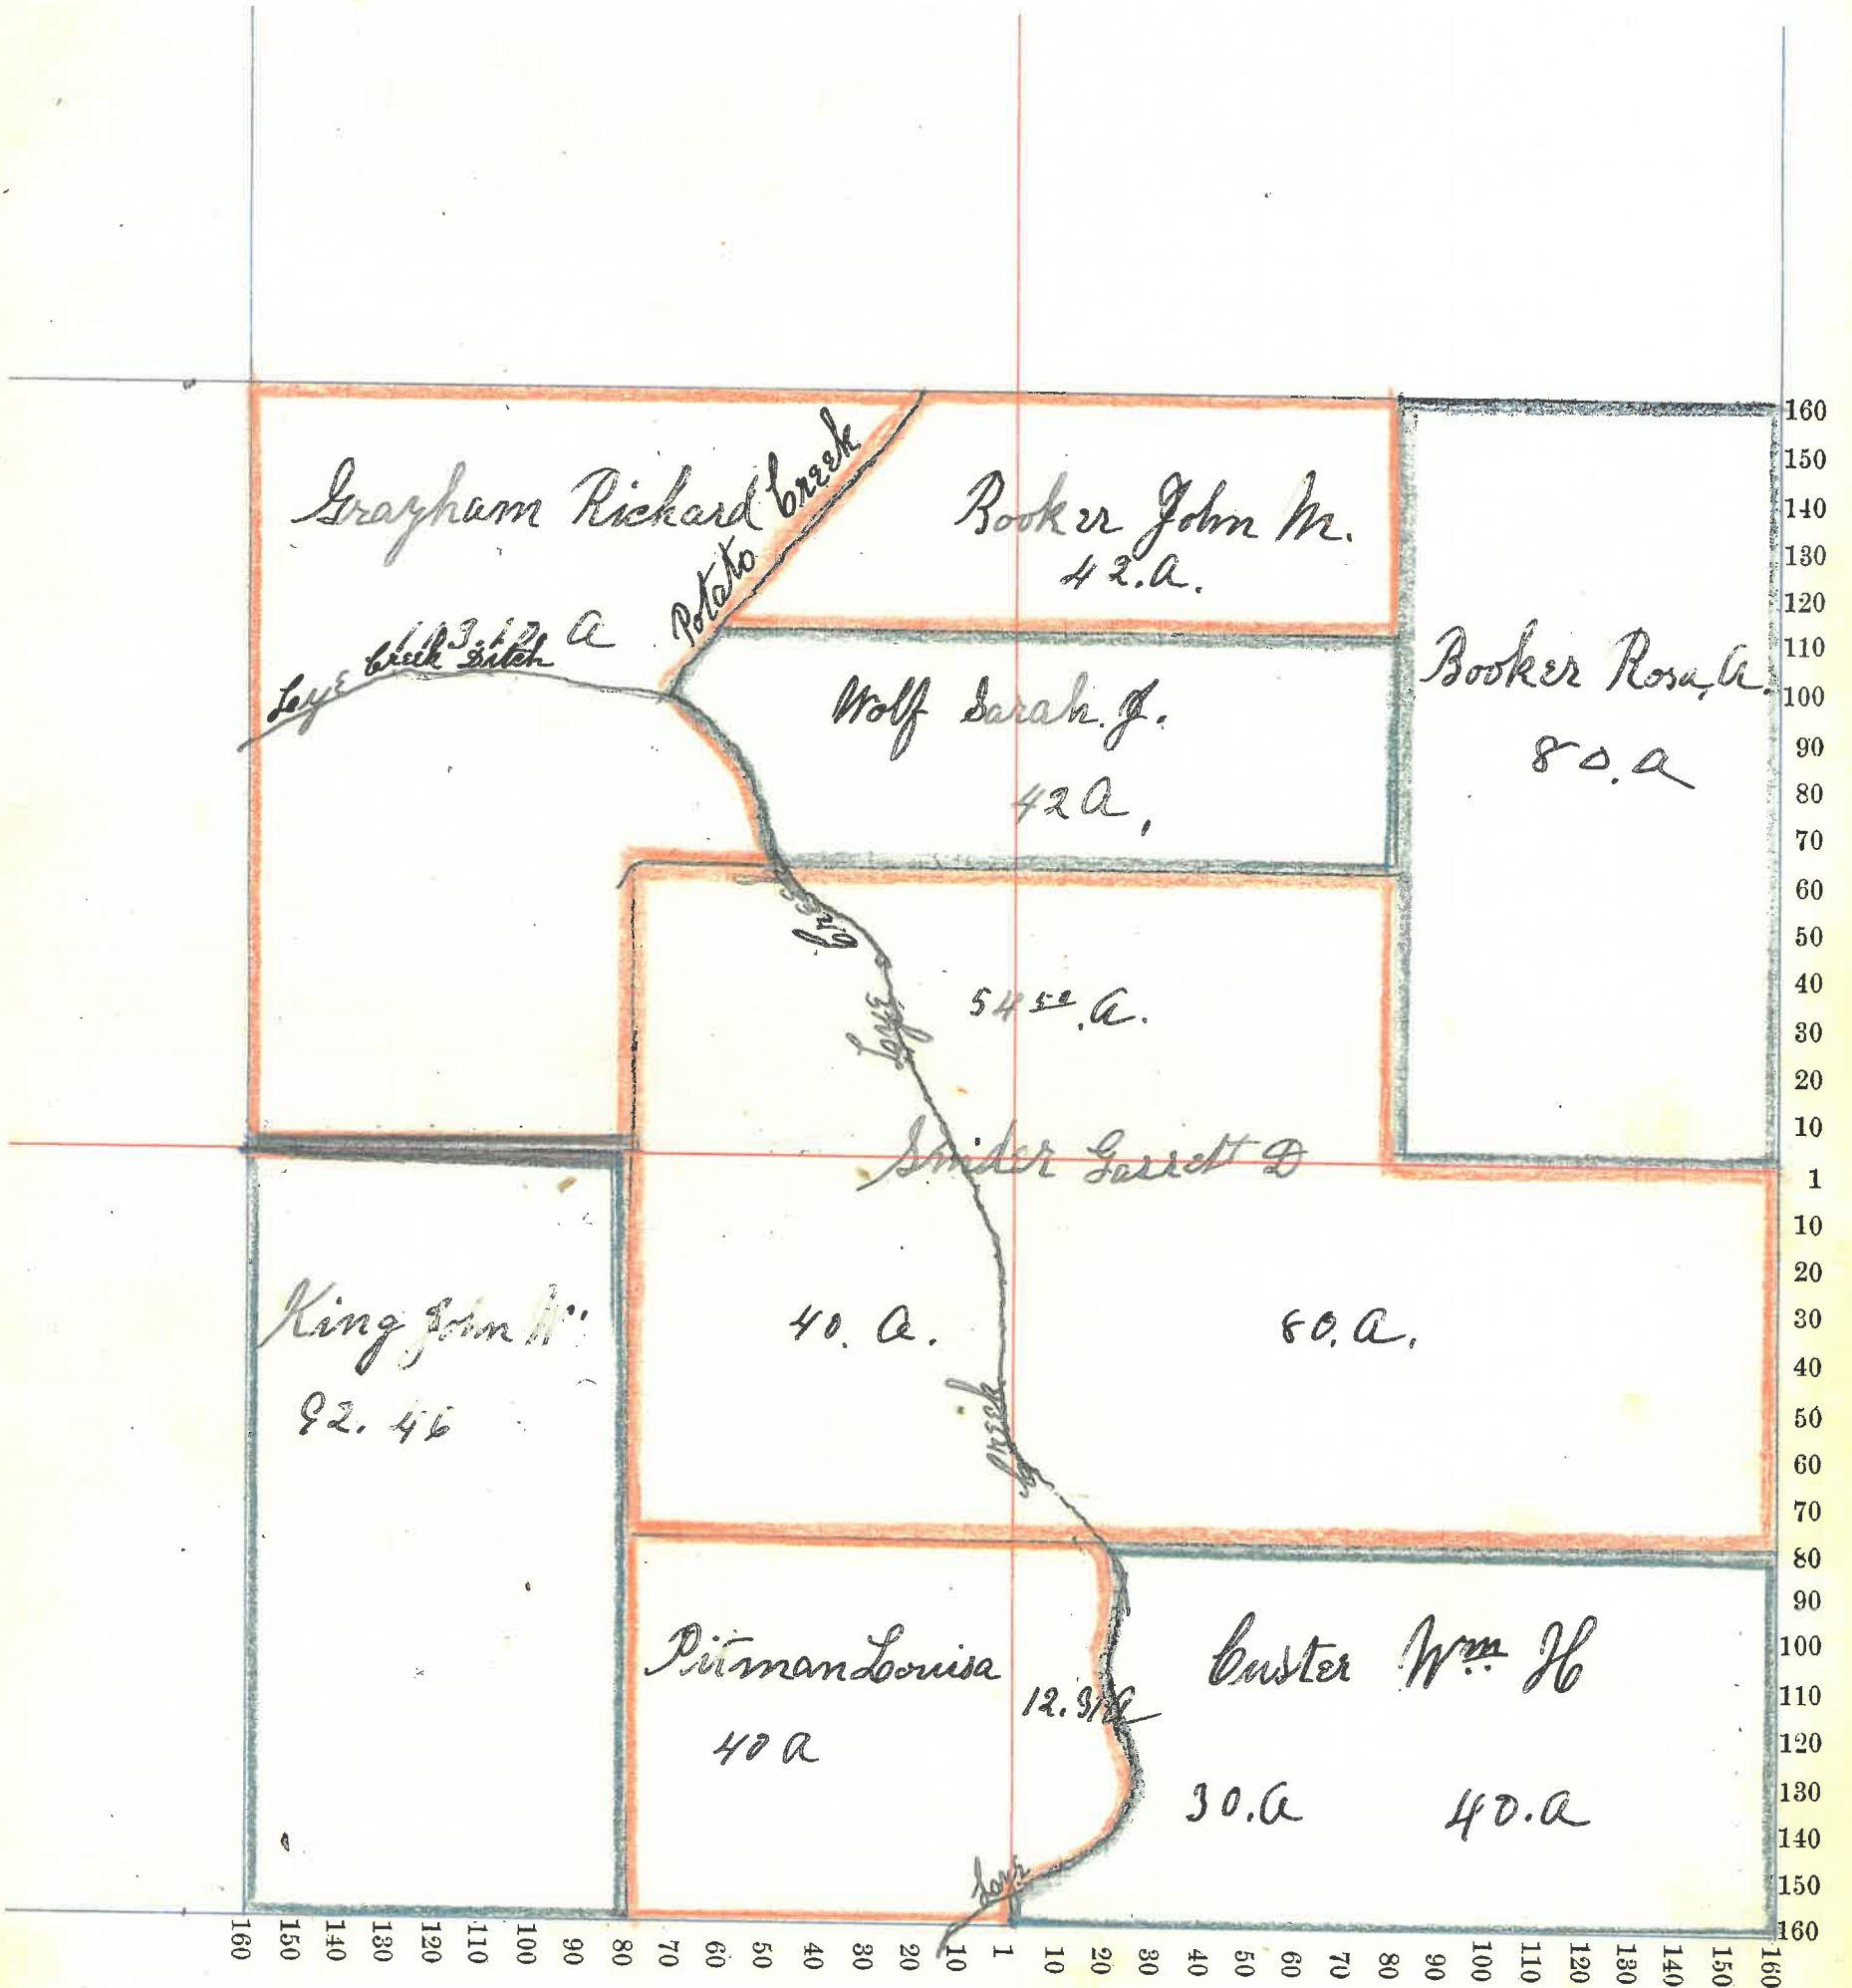 Grazham Richard
Potato Creek
Booker John M.
42.A.
A
Leye Creek Ditch
Wolf Sarah. J.
42 A.
Booker Rosa, A.
80. A
Leye Creek
54 50. A.
Snider Garrett D
King John
92. 46
40. A.
80. A.
Creek
Pitman Louisa
40 A
Custer Wm H
30. A
40. A
Leye
160
150
140
130
120
110
100
90
80
70
60
50
40
30
20
10
1
10
20
30
40
50
60
70
80
90
100
110
120
130
140
150
160
160 150 140 130 120 110 100 90 80 70 60 50 40 30 20 10 1 10 20 30 40 50 60 70 80 90 100 110 120 130 140 150 160